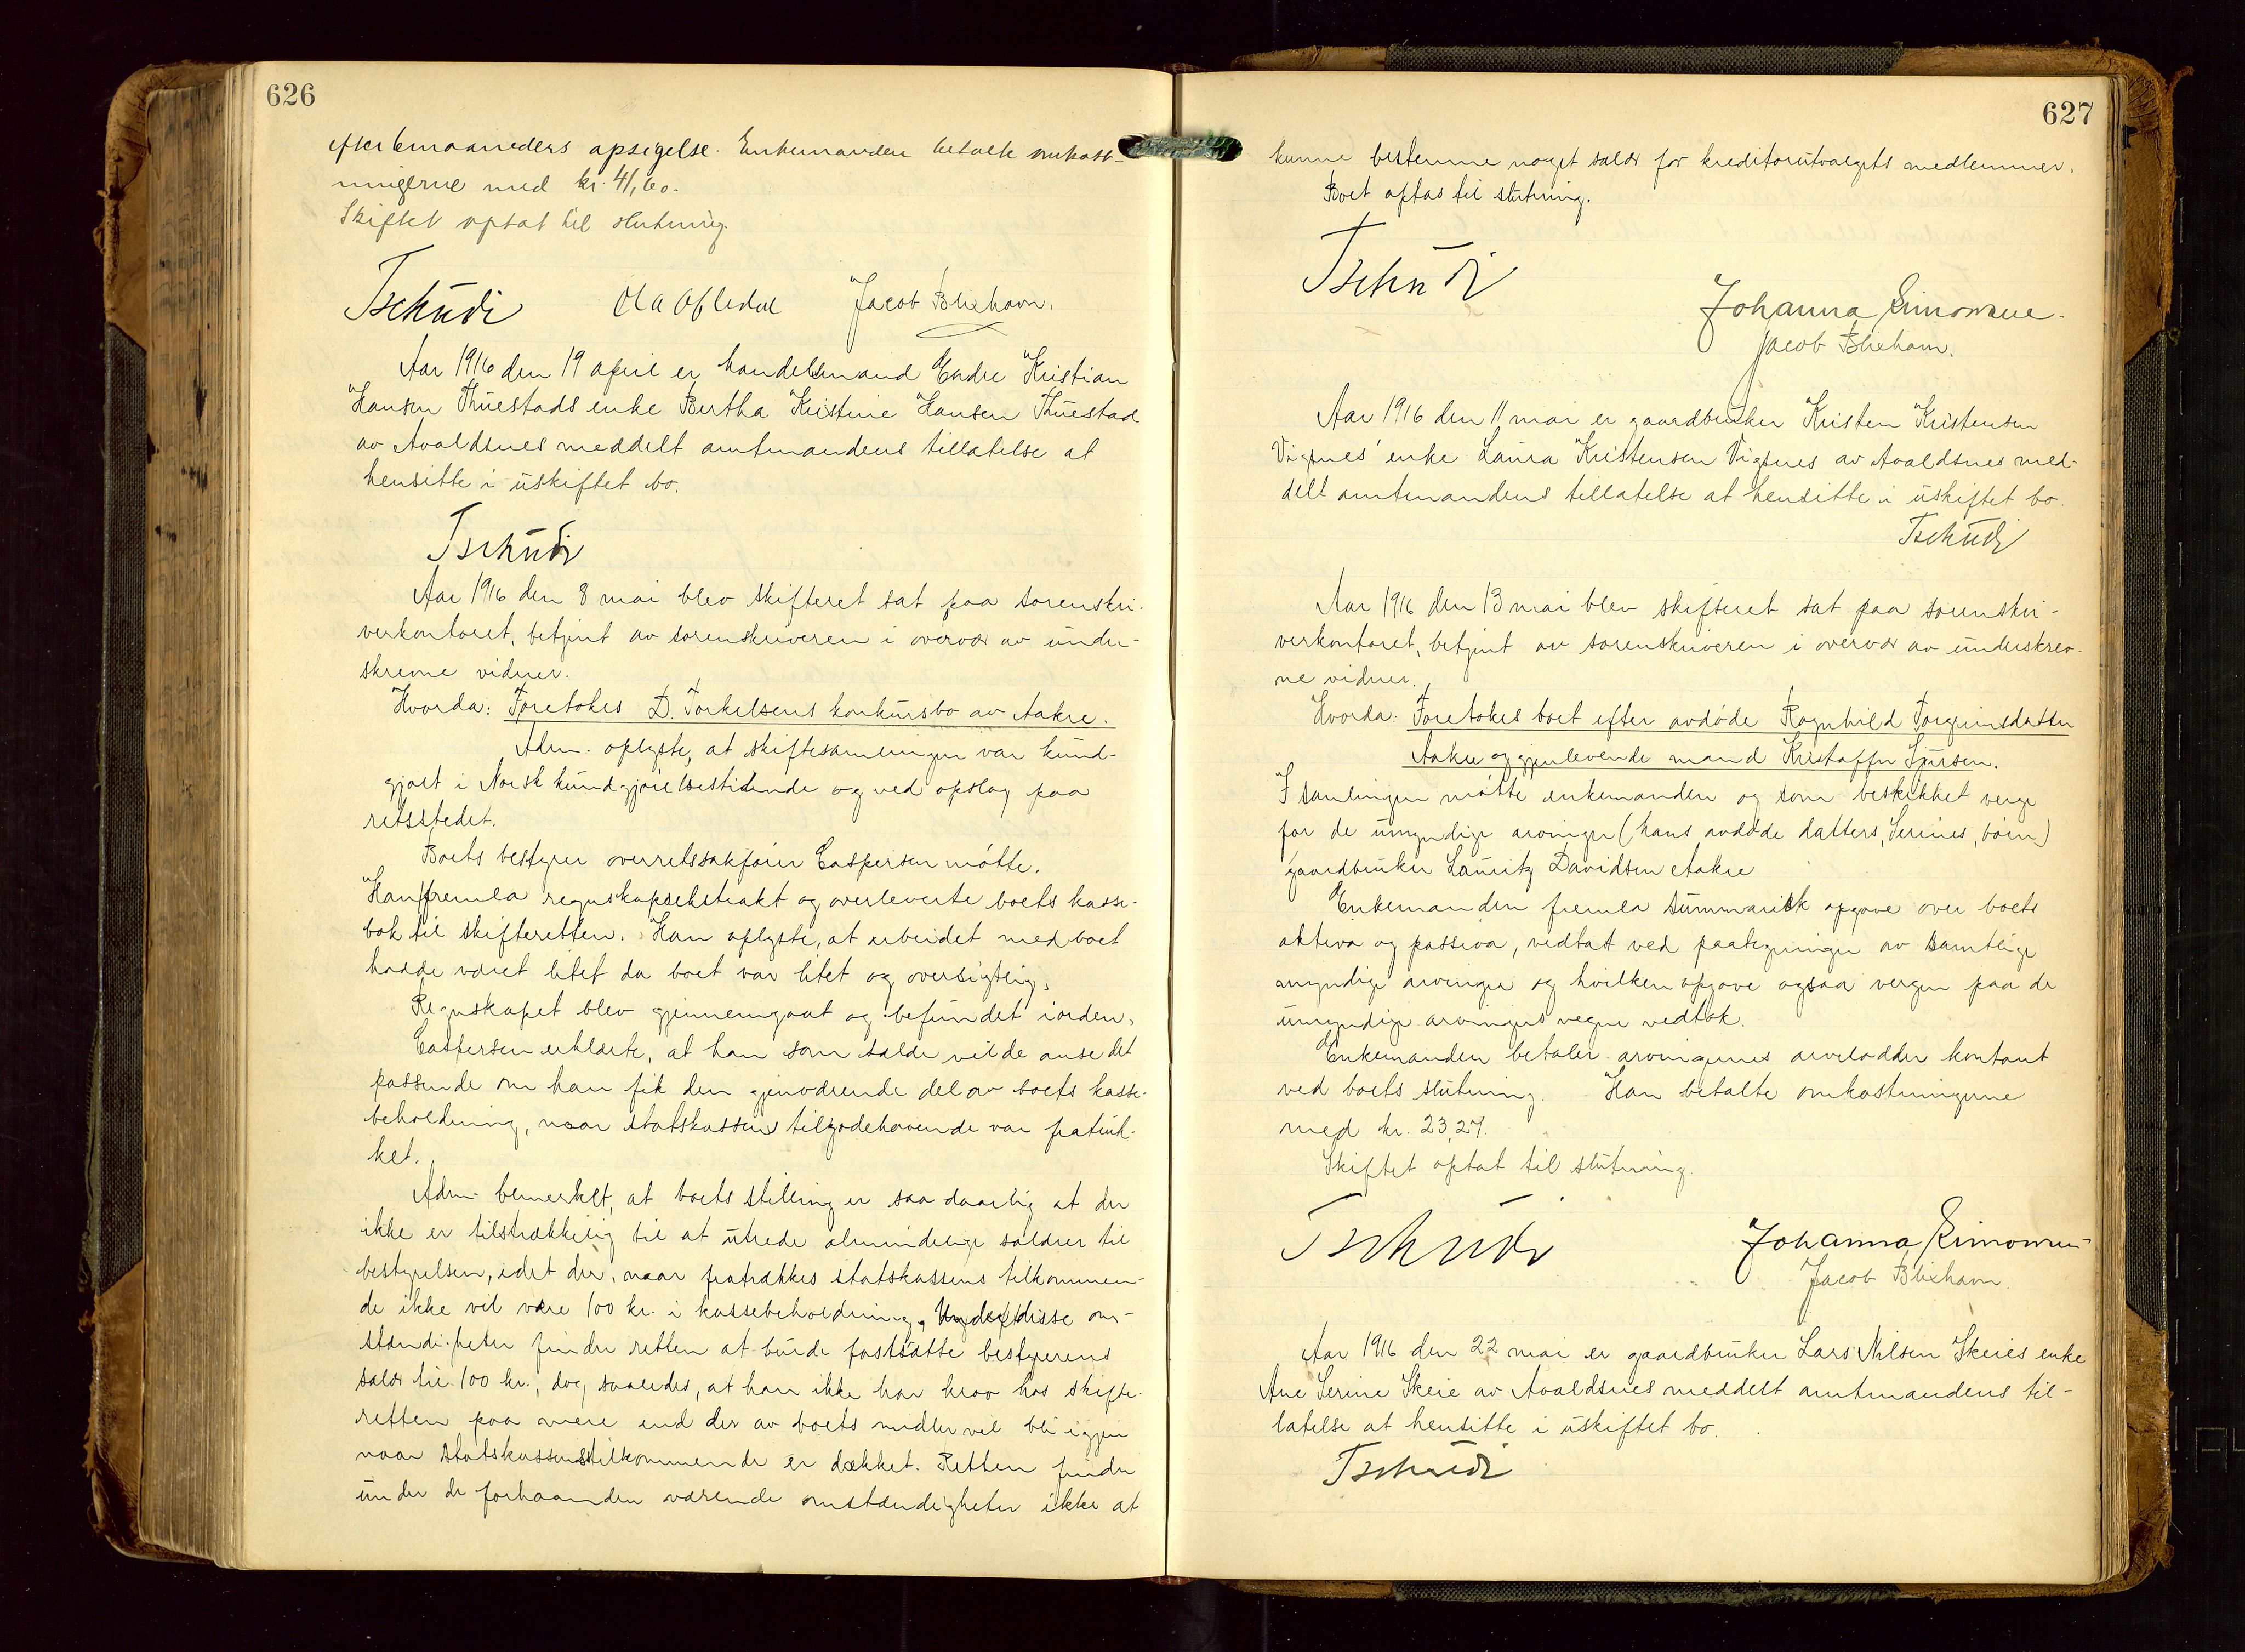 626
efter 6 maaneders opsigelse. Enkemanden betalte omkost-
ningerne med kr. 41,60.
Skiftet optat til slutning.
Tschudi Ola Jacob Blixhavn.
Aar 1916 den 19 april er handelsmand Endre Kristian
Hansen Thuestads enke Bertha Kristine Hansen Thuestad
av Avaldsnes meddelt amtmandens tillatelse at
hensitte i uskiftet bo.
Tschudi
Aar 1916 den 8 mai blev skifteret sat paa sorenskri-
verkontoret, betjent av sorenskriveren i overvær av under-
skrevne vidner.
Hvorda: Foretokes D. Torkelsens konkursbo av Aakre.
Adm. oplyste, at skiftesamlingen var kund-
gjort i Norsk kundgjørelsestidende og ved opslag paa
retsstedet.
Boets bestyrer overretssakfører Caspersen møtte.
Han fremla regnskapsekstrakt og overleverte boets kasse-
bok til skifteretten. Han oplyste, at arbeidet med boet
hadde været litet da boet var litet og oversigtlig.
Regnskapet blev gjennemgaat og befundet i orden.
Caspersen erklærte, at han som salær vilde anse det
passende om han fik den gjenværende del av boets kasse-
beholdning, naar statskassens tilgodehavende var fratruk-
ket.
Adm. bemerket, at boets stilling er saa daarlig at der
ikke er tilstrækkelig til at utrede almindelige salærer til
bestyrelsen, idet der, naar fratrækkes statskassens tilkommen-
de ikke vil være 100 kr. i kassebeholdning. Under disse om-
stændigheter finder retten at burde fastsætte bestyrerens
salær til 100 kr., dog saaledes, at han ikke har krav hos skifte-
retten paa mere end der av boets midler vil bli igjen
naar statskassens tilkommende er dækket. Retten finder
under de forhaanden værende omstændigheter ikke at
627
kunne bestemme noget salær for kreditorutvalgets medlemmer.
Boet optas til slutning.
Tschudi
Johanna Simonsen.
Jacob Blixhavn.
Aar 1916 den 11 mai er gaardbruker Kristen Kristensen
Vignes' enke Laura Kristensen Vignes av Avaldsnes med-
delt amtmandens tillatelse at hensitte i uskiftet bo.
Tschudi
Aar 1916 den 13 mai blev skifteret sat paa sorenskri-
verkontoret, betjent av sorenskriveren i overvær av underskrev-
ne vidner.
Hvorda: Foretokes boet efter avdøde Ragnhild Torgrimsdatter
Aakre og gjenlevende mand Kristoffer Sjursen.
I samlingen møtte enkemanden og som beskikket verge
for de umyndige arvinger (hans avdøde datters, Serines, børn)
gaardbruker Lauritz Davidsen Aakre
Enkemanden fremla summarisk opgave over boets
aktiva og passiva, vedtat ved paategninger av samtlige
myndige arvinger og hvilken opgave ogsaa vergen paa de
umyndige arvingers vegne vedtok.
Enkemanden betaler arvingernes arvelodder kontant
ved boets slutning. Han betalte omkostningerne
med kr. 23,27.
Skiftet optat til slutning.
Tschudi
Johanna Simonsen
Jacob Blixhavn.
Aar 1916 den 22 mai er gaardbruker Lars Nilsen Skeies enke
Ane Serine Skeie av Avaldsnes meddelt amtmandens til-
latelse at hensitte i uskiftet bo.
Tschudi